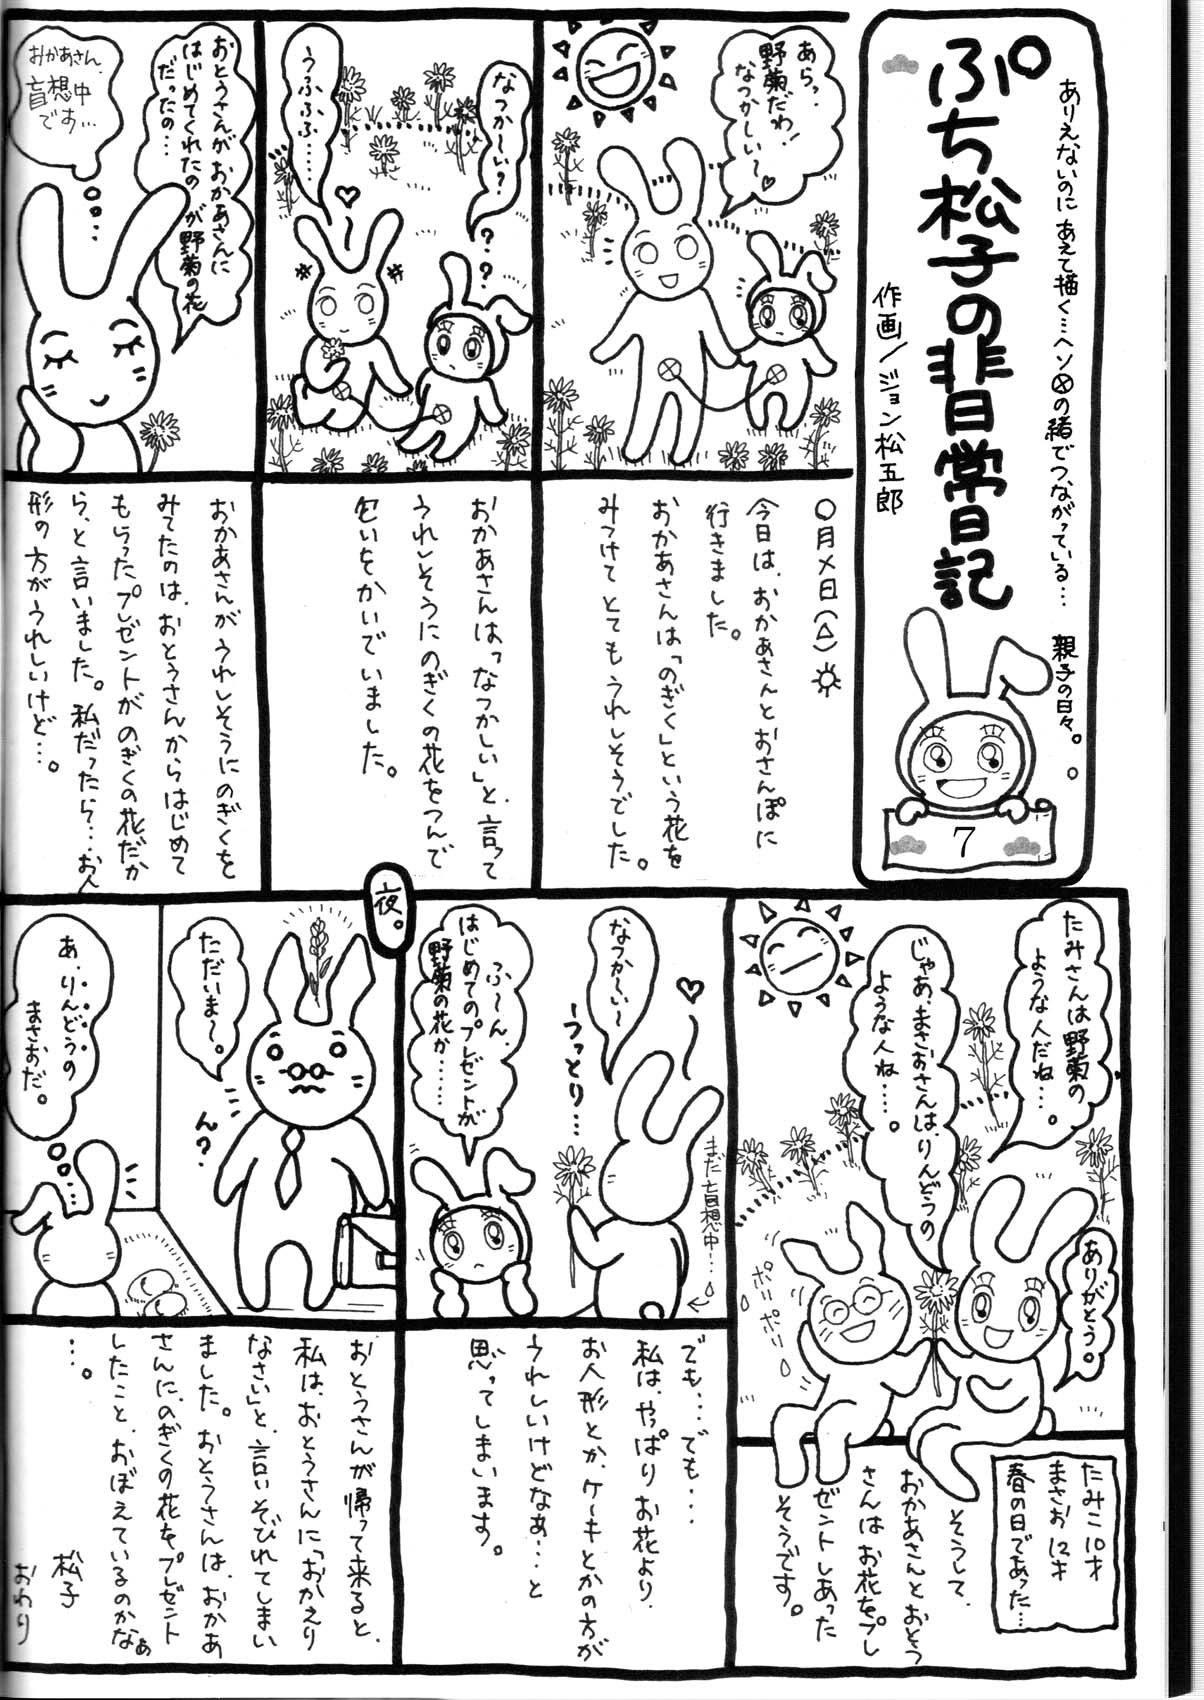 ありえないのに あえて描く…ヘソの緒でつながっている…
親子の日々。
ぷち松子の非日常日記
作画/ジョン松五郎
7
あらっ、
野菊だわ!
なつかしい〜♡
○月×日(△)
今日は、おかあさんとおさんぽに
行きました。
おかあさんは「のぎく」という花を
みつけて とても うれしそうでした。
なつか〜い?
???
うふふふ……
おかあさんは「なつかしい」と、言って
うれしそうに のぎくの花をつんで
匂いをかいでいました。
おとうさんが おかあさんに
はじめてくれたの が野菊の花
だったの…
おかあさん、
盲想中
です…
おかあさんが うれしそうに のぎくを
みてたのは、おとうさんから はじめて
もらった プレゼントが のぎくの花だか
ら、と言いました。私だったら…お人
形の方が うれしいけど…。
たみさんは野菊の
ような人だね…。
じゃあ、まさおさんは、りんどうの
ような人ね……。
ありがとう。
ポリポリ
たみこ10才
まさお12才
春の日であった…
そうして、
おかあさんと おとう
さんは お花をプレ
ゼントしあった
そうです。
なつか〜い〜
うっとり…
まだ盲想中…
ふ〜ん、
はじめてのプレゼントが
野菊の花か……
でも…でも…
私は、やっぱり お花より、
お人形とか、ケーキとかの方が
うれしいけどなぁ…と
思ってしまいます。
夜。
ただいま〜。
ん?
あ、りんどうの
まさおだ。
おとうさんが帰って来ると、
私は、おとうさんに「おかえり
なさい」と、言いそびれてしまい
ました。おとうさんは、おかあ
さんに、のぎくの花をプレゼント
したこと、おぼえているのかなぁ
…。
松子
おわり